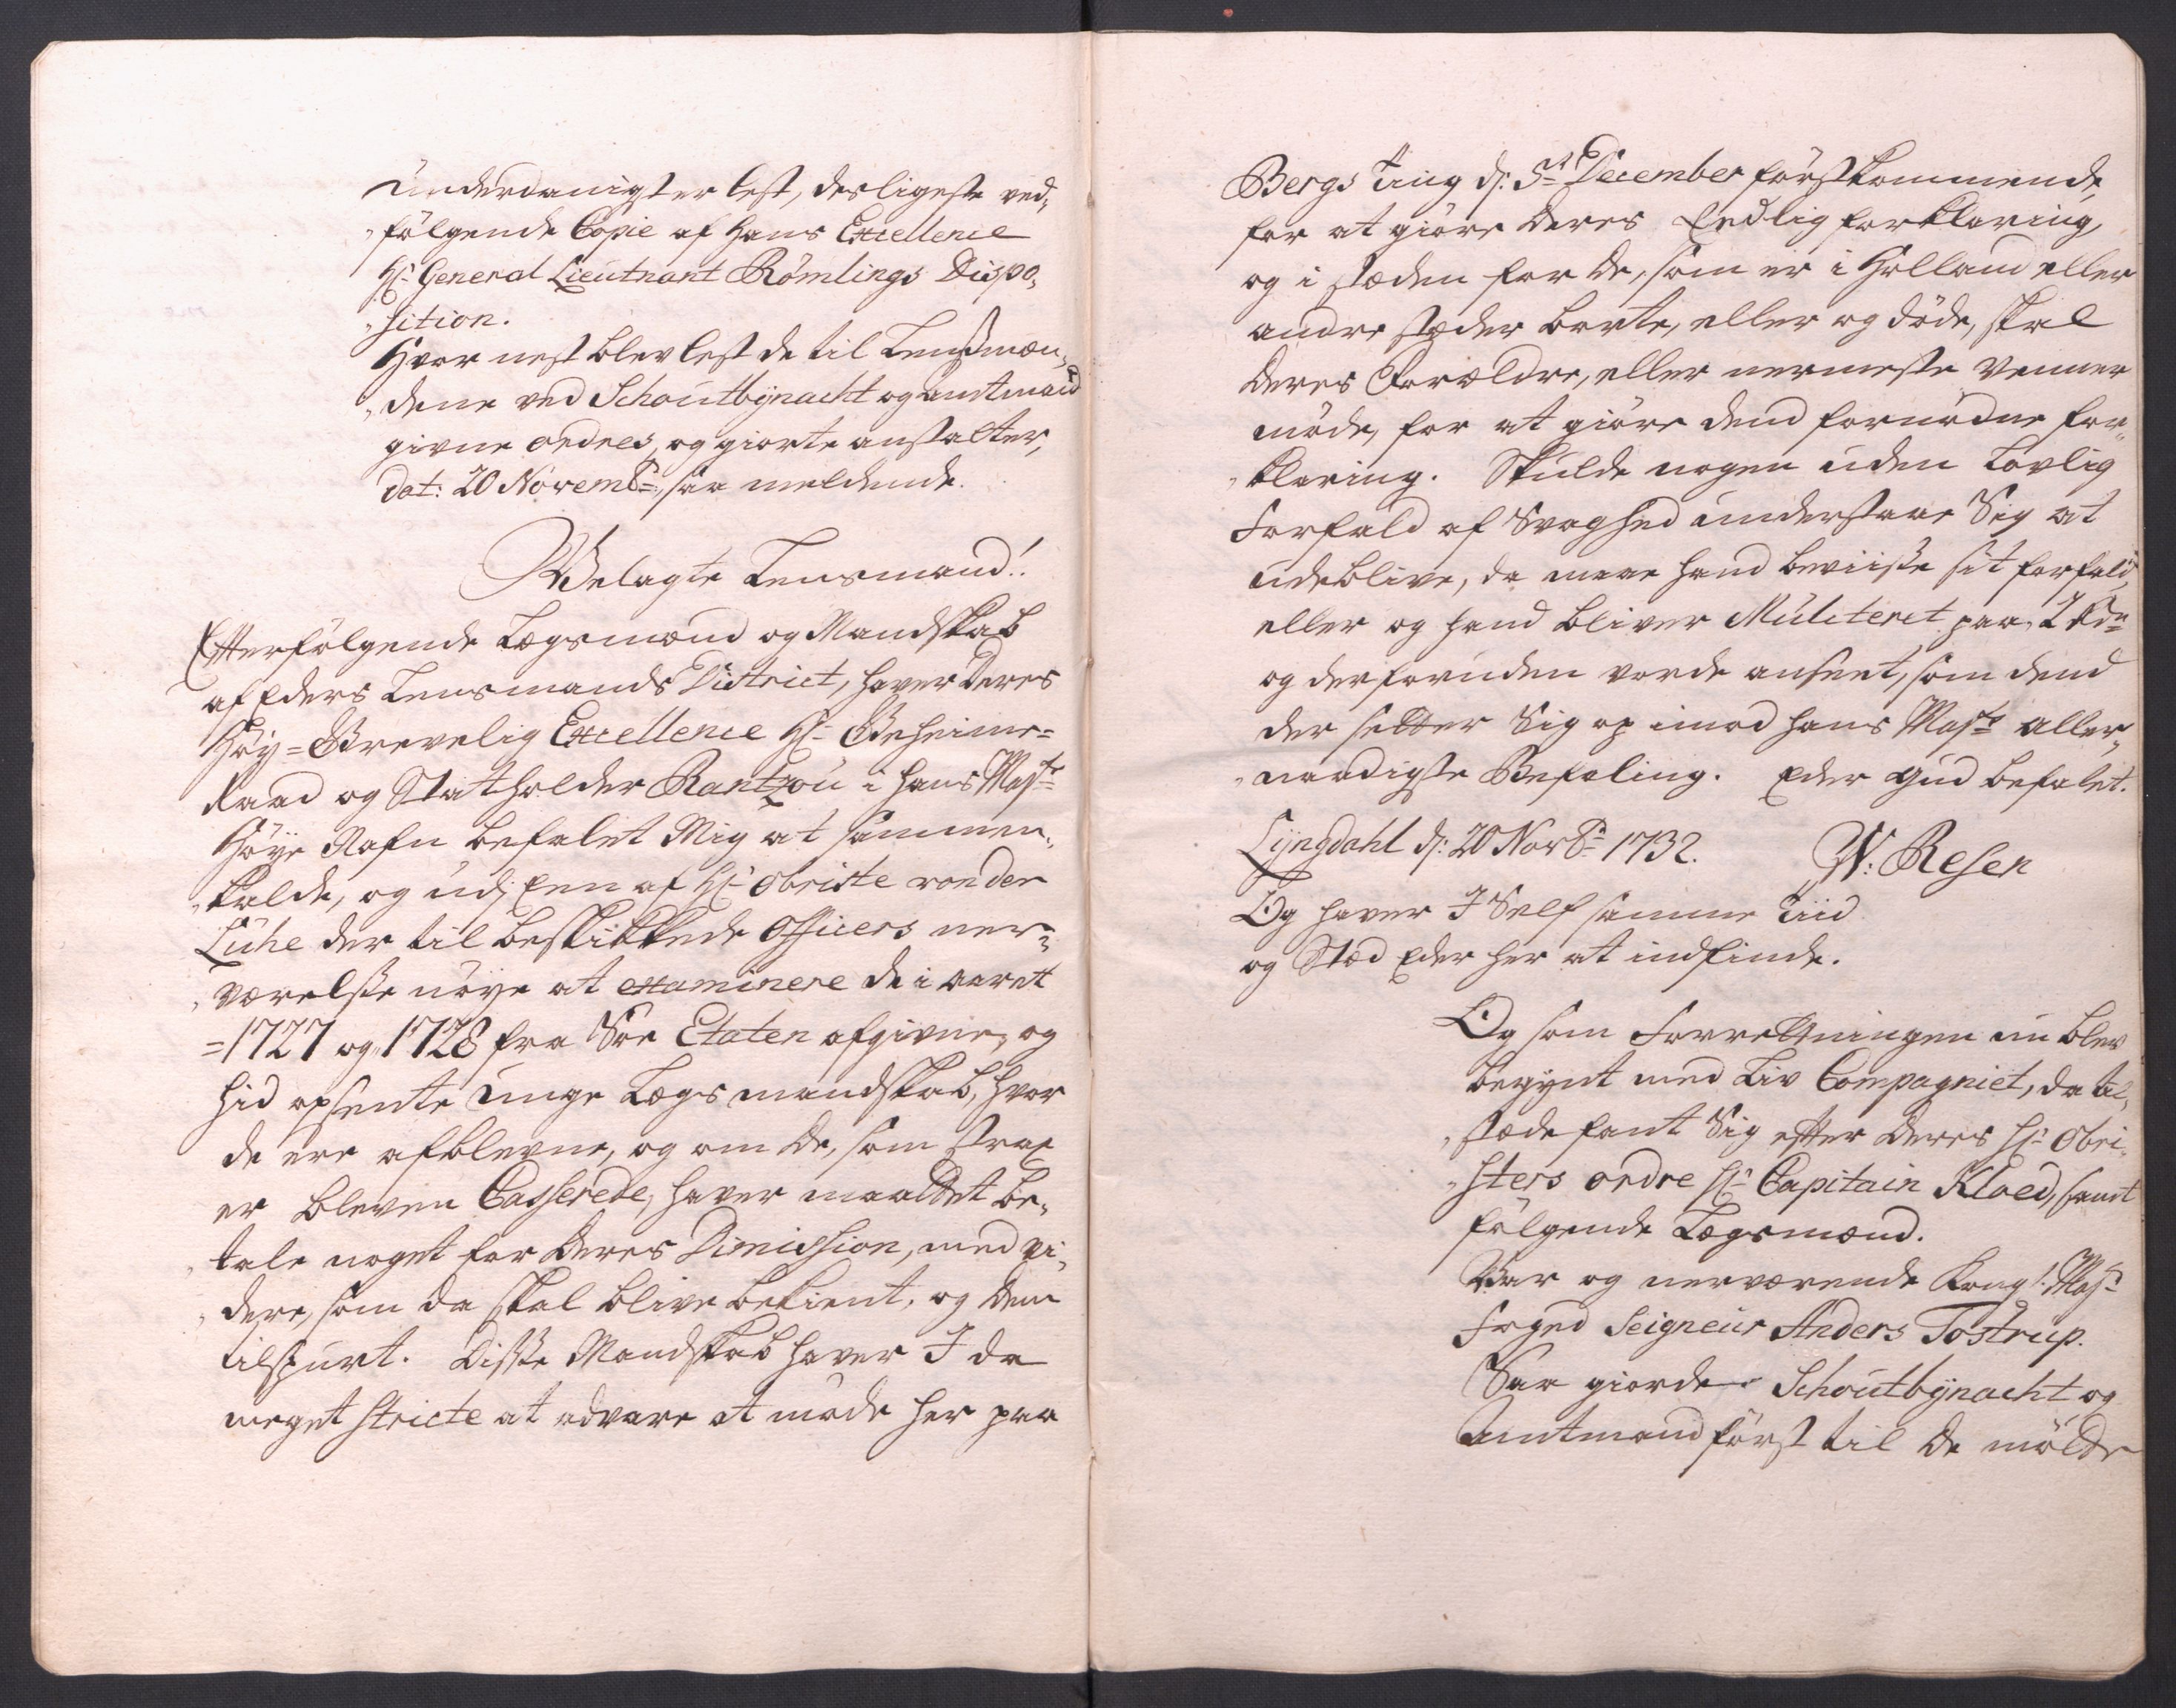 underdanigst er lest, desligeste ved„
„følgende Copie af Hans Excellence
Hr: General Lieutnant Römlings Dispo„
„sition.
Hvor nest blev lest de til Lensmæn„
„dene ved Schoutbÿnacht og Amtmand
givne ordres, og giorte anstalter,
dat: 20 Novembr:, saa meldende.
Welagte Lensmand!
Efterfølgende Lægsmænd og Mandskab
af Eders Lensmands District, haver Deres
Høy=Grevelig Excellence Hr: Geheime=
Raad og Statholder Rantzou i Hans Mayts:
Høye Nafn befalet Mig at sammen„
„kalde, og udj Een af Hr: Obriste von der
Lühe der til beskikkede Officers ner„
„værelse nøye at examinere de i aaret
=1727 og 1728 fra Søe Etaten afgivne, og
hid opsente unge Lægs mandskab, hvor
de ere afblevne, og om de, som strax
er bleven Casserede, haver maattet be„
„tale noget for deres Dimission, med vi„
„dere, som da skal blive bekient, og dem
tilspurt. Disse Mandskab haver I da
meget stricte at advare at møde her paa
Bergs Ting d: 5te December førstkommende,
for at giøre deres Eedlig forklaring,
og i stæden for de, som er i Holland eller
andre stæder borte, eller og døde, skal
deres Forældre, eller nermeste Venner
møde, for at giøre dend fornødne for„
„klaring. Skulde nogen uden Lovlig
Forfald af Svaghed understaae Sig at
udeblive, da maae hand beviise sit forfald,
eller og hand bliver Mulcteret paa 2 Rdr
og derforuden vorde anseet, som dend
der setter Sig op imod hans Mayts: Aller„
„naadigste Befaling. Eder Gud befalet.
Lyngdahl d: 20 Novbr: 1732. W: Resen
Og haver I Self samme Tiid
og Stæd Eder her at indfinde.
Og som Forretningen nu blev
begynt med Liv Compagniet, da til„
„stæde fant Sig efter deres Hr: Obri„
„sters ordre Hr: Capitain Kloed, samt
følgende Lægsmænd.
War og nerværende Kongl: Mayts:
Foged Seigneur Anders Tostrup.
Saa giorde Schoutbÿnacht og
Amtmand først til de mødte